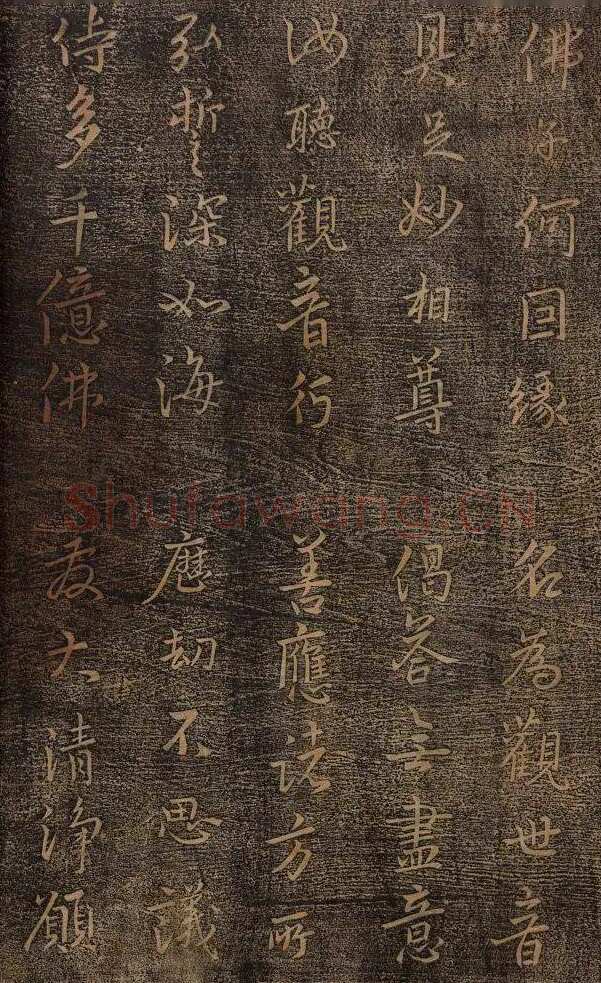 佛子何因緣 名為觀世音
具足妙相尊 偈答無盡意
汝聽觀音行 善應諸方所
弘誓深如海 歷劫不思議
侍多千億佛 發大清淨願
Shufawang.CN